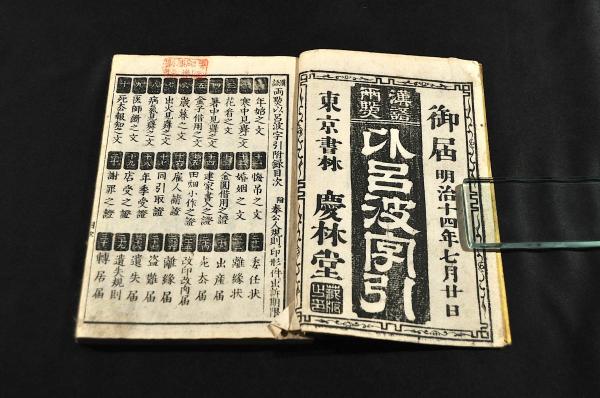 御届 明治十四年七月廿日
両點
以呂波字引
東京書林 慶林堂
両點以呂波字引附録目次
年始之文
寒中見舞之文
花看之文
暑中見舞之文
金子借用之文
歳暮之文
出火見舞之文
病氣見舞之文
医師頼之文
死去報知之文
悔吊之文
婚姻之文
金圓借用之證
建家書入之證
田畑小作之證
雇人請證
同引取證
年季受證
店受之證
謝罪之證
奉公人規則印形件出訴期限
委任状
離縁状
出産届
死去届
改印改向届
離縁届
盗難届
遺失届
遺失規則
轉居届